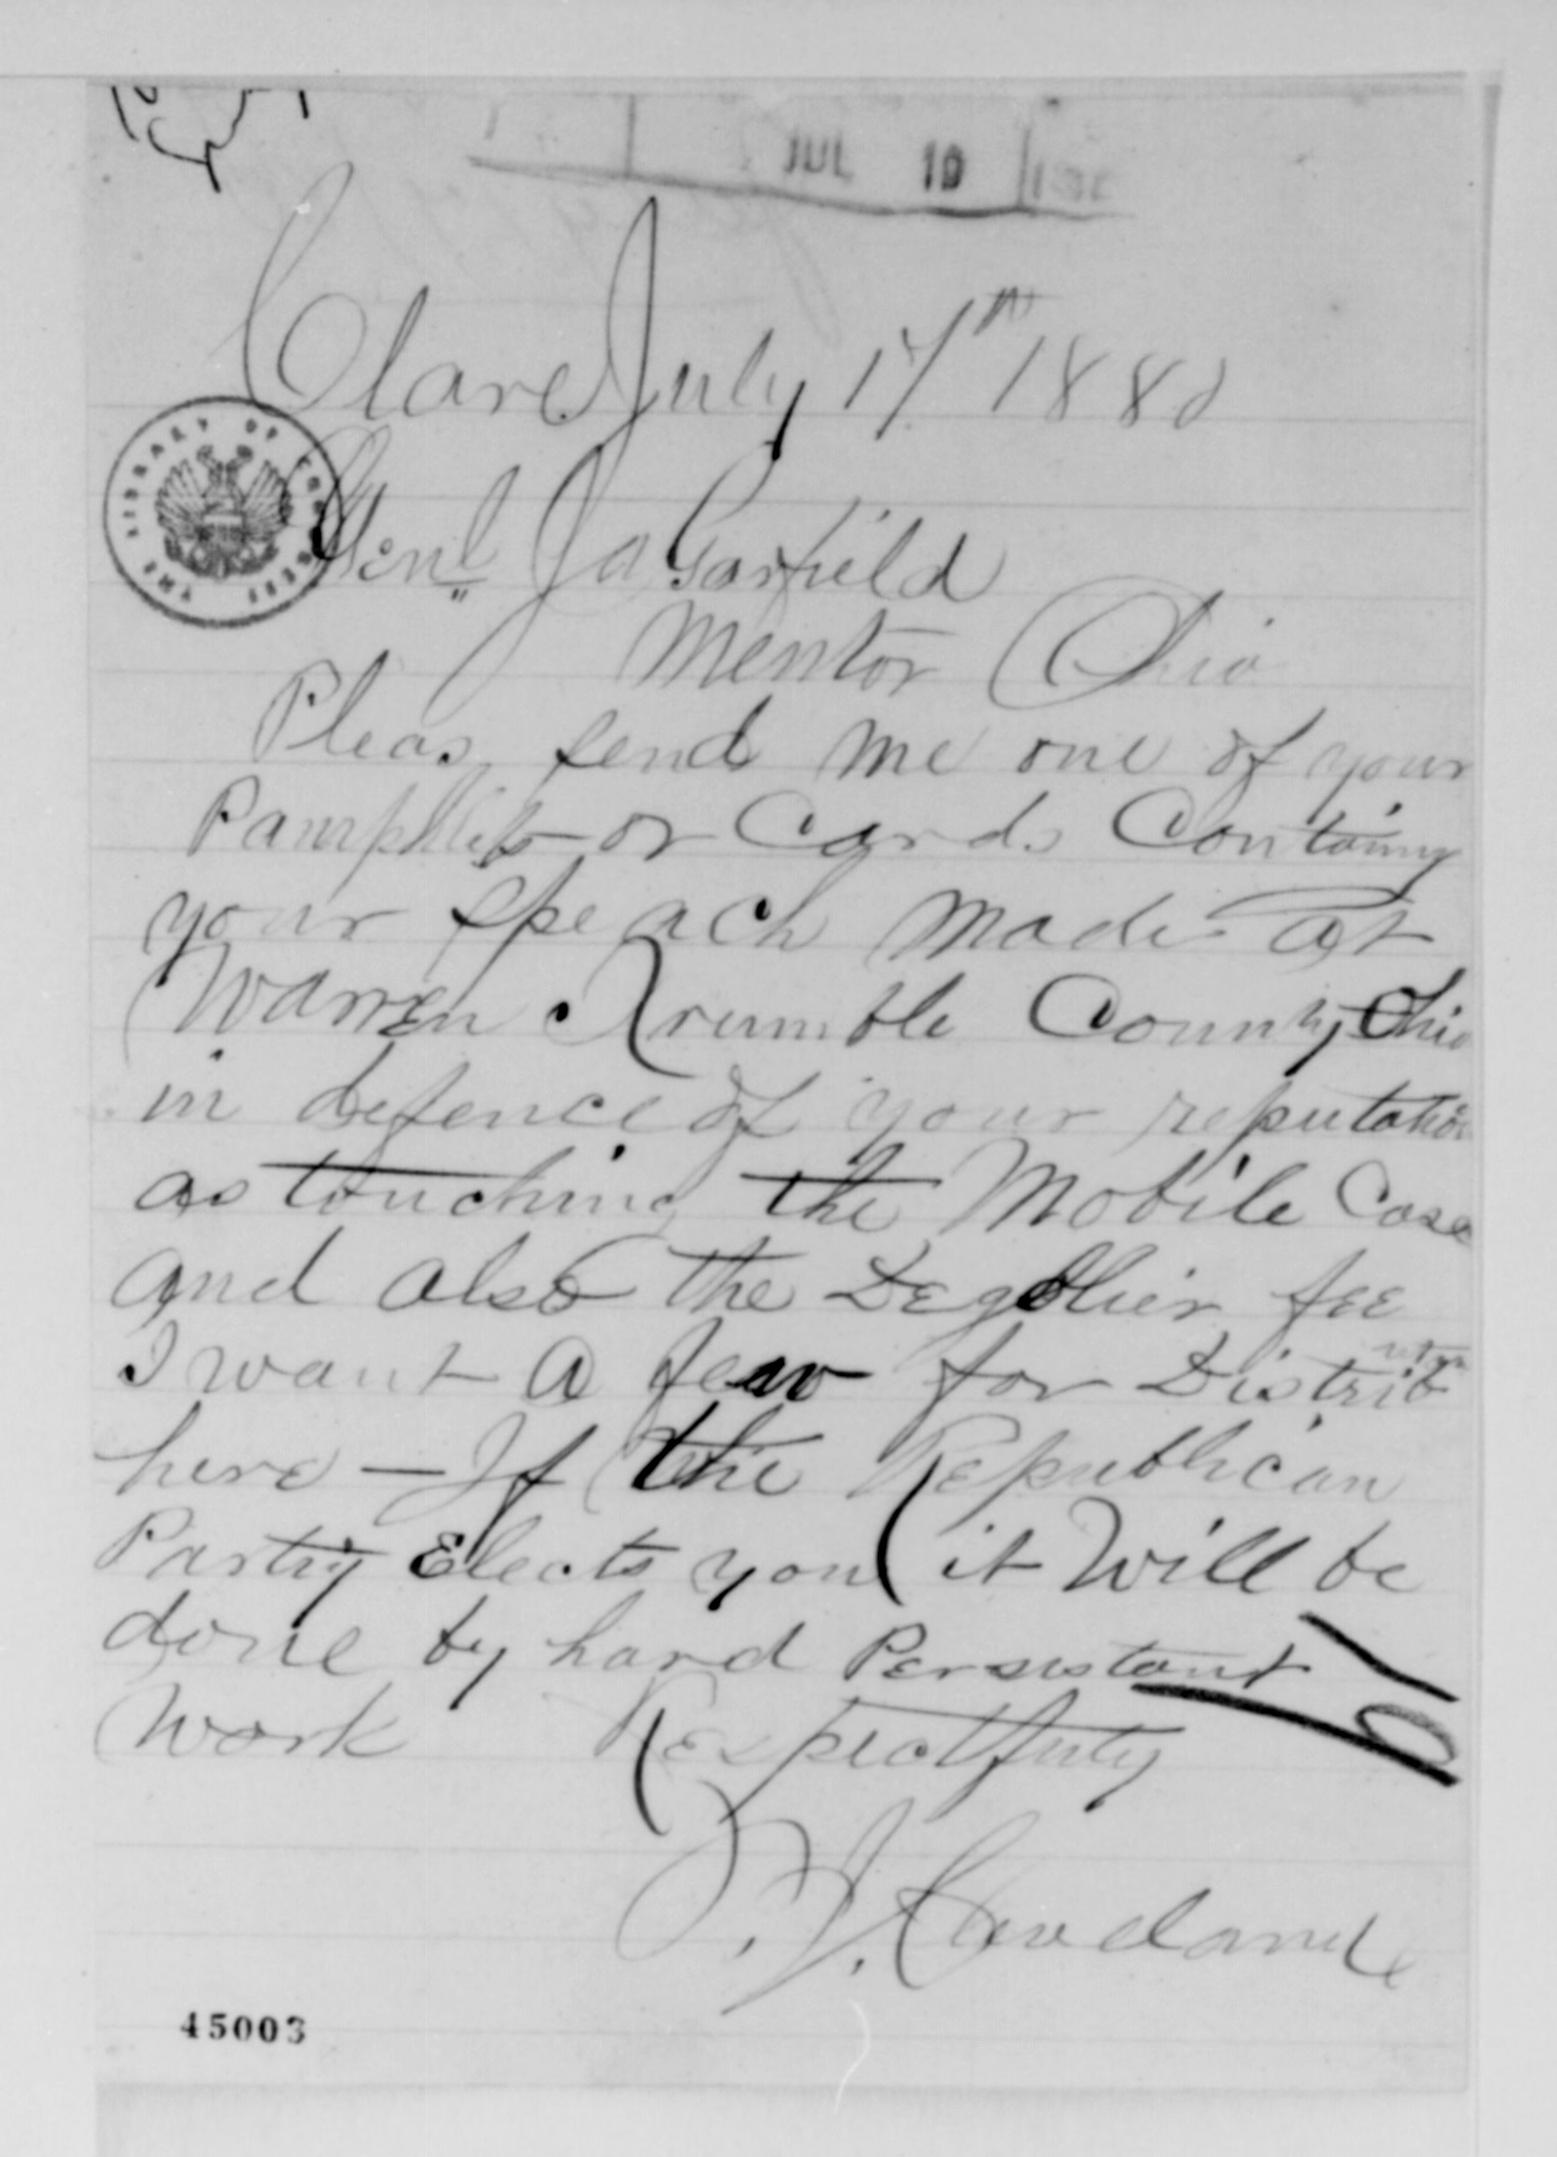 JUL 19
Clare July 17th 1880
THE LIBRARY OF CONGRESS
Genl J A Garfield
Mentor Ohio
Pleas send me one of your
Pamphlets or Cards Containing
your Speach made at
Warren Trumble County Ohio
in defence of your reputation
as touching the Mobile Case
and also the Degollier fee
I want a few for Distribution
here — If the Republican
Party Elects you it Will be
done by hard Persistant
Work Respectfuly
45003